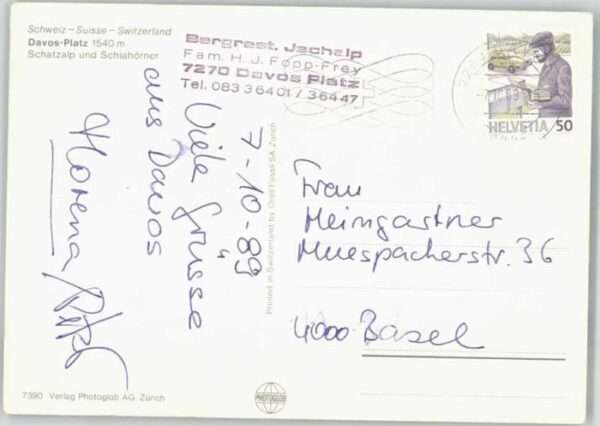 Schweiz – Suisse – Switzerland
Davos-Platz 1540 m
Schatzalp und Schiahörner
Bergrest. Jschalp
Fam. H. J. Fopp-Frey
7270 Davos Platz
Tel. 083 36401 / 36447
HELVETIA 50
7-10-89
Viele Grüsse
aus Davos
Printed in Switzerland by Orell Füssli SA, Zürich
Frau
Heimgartner
Muespacherstr. 36
4000 Basel
7390 Verlag Photoglob AG, Zürich
PHOTOGLOB